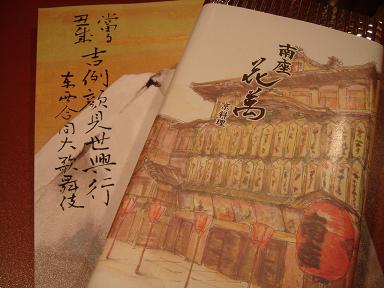 當る
丑年
吉例顔見世興行
东西合同大歌舞伎
南座
花萬
京料理